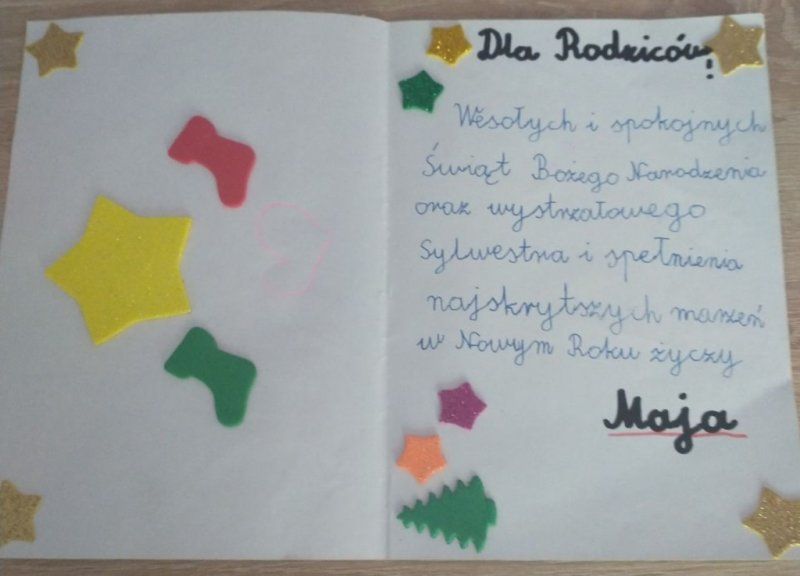 Dla Rodziców!
Wesołych i spokojnych
Świąt Bożego Narodzenia
oraz wystrzałowego
Sylwestra i spełnienia
najskrytszych marzeń
w Nowym Roku życzy
Maja